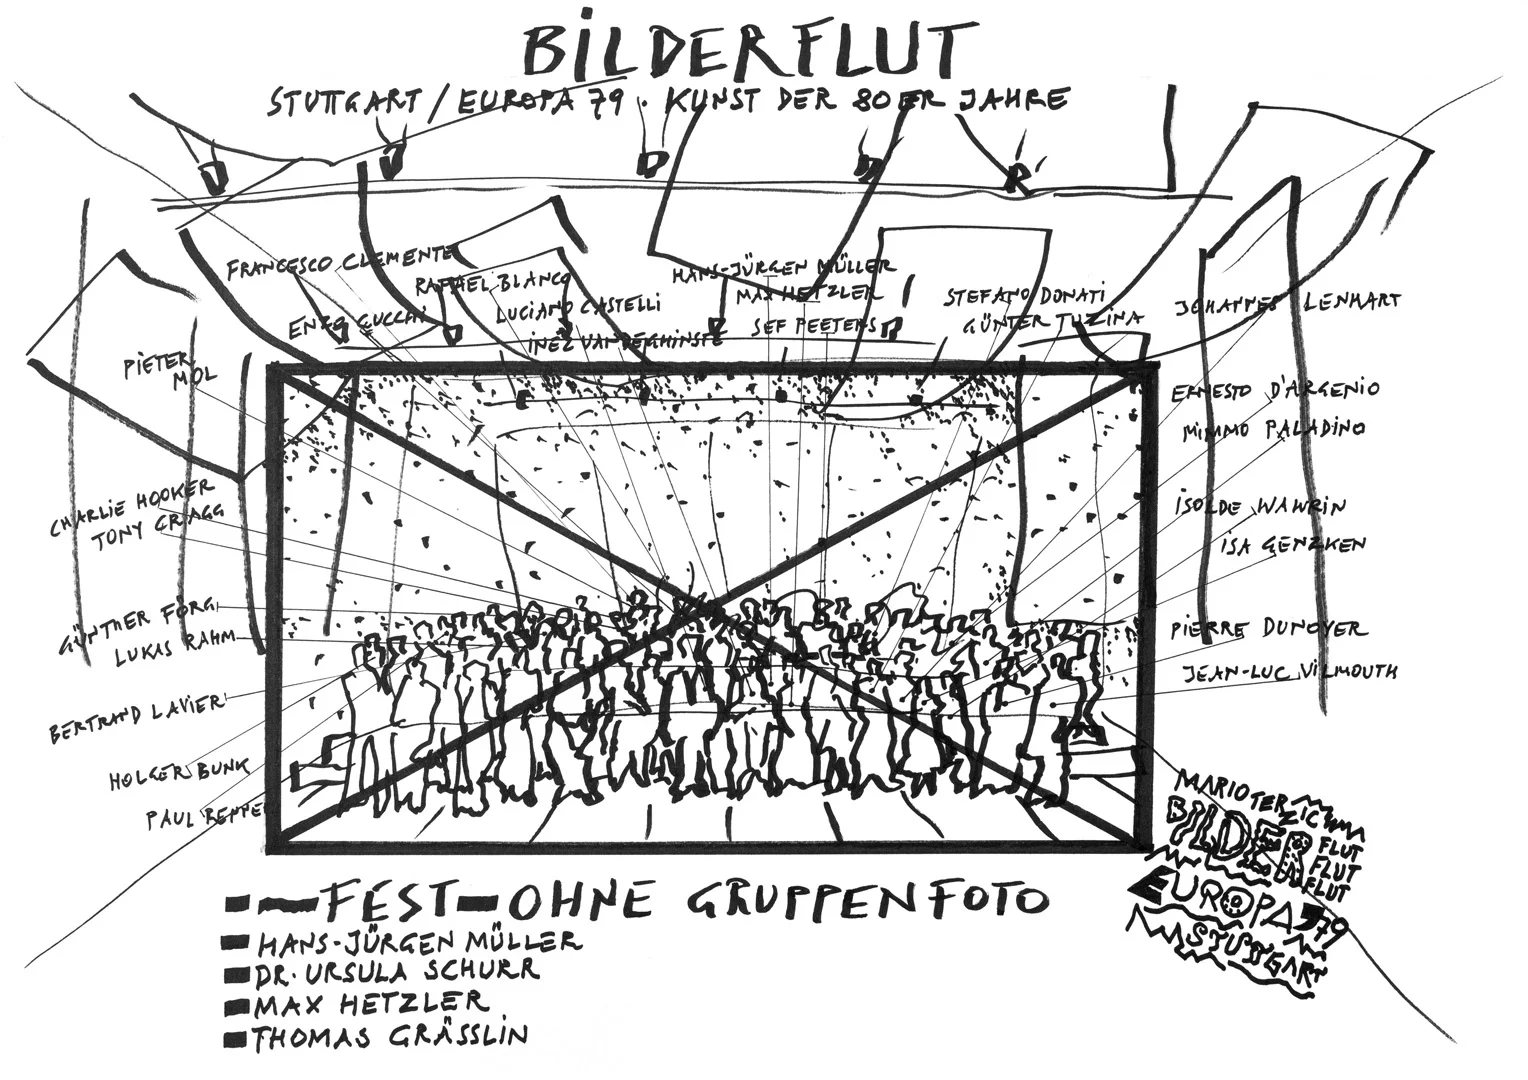 BILDERFLUT
STUTTGART / EUROPA 79 · KUNST DER 80ER JAHRE
FRANCESCO CLEMENTE
RAFAEL BLANCO
LUCIANO CASTELLI
ENZO CUCCHI
INEZ VANDEGHINSTE
HANS-JÜRGEN MÜLLER
MAX HETZLER
SEF PEETERS
STEFANO DONATI
GÜNTER TUZINA
JOHANNES LENHART
PIETER
MOL
ERNESTO D'ARGENIO
MIMMO PALADINO
CHARLIE HOOKER
TONY CRAGG
ISOLDE WAWRIN
ISA GENZKEN
GÜNTHER FÖRG
LUKAS RAHM
PIERRE DUNOYER
JEAN-LUC VILMOUTH
BERTRAND LAVIER
HOLGER BUNK
PAUL
MARIO TERZIC
BILDER
FLUT
FLUT
FLUT
EUROPA 79
STUTTGART
FEST-OHNE GRUPPENFOTO
HANS-JÜRGEN MÜLLER
DR. URSULA SCHURR
MAX HETZLER
THOMAS GRÄSSLIN